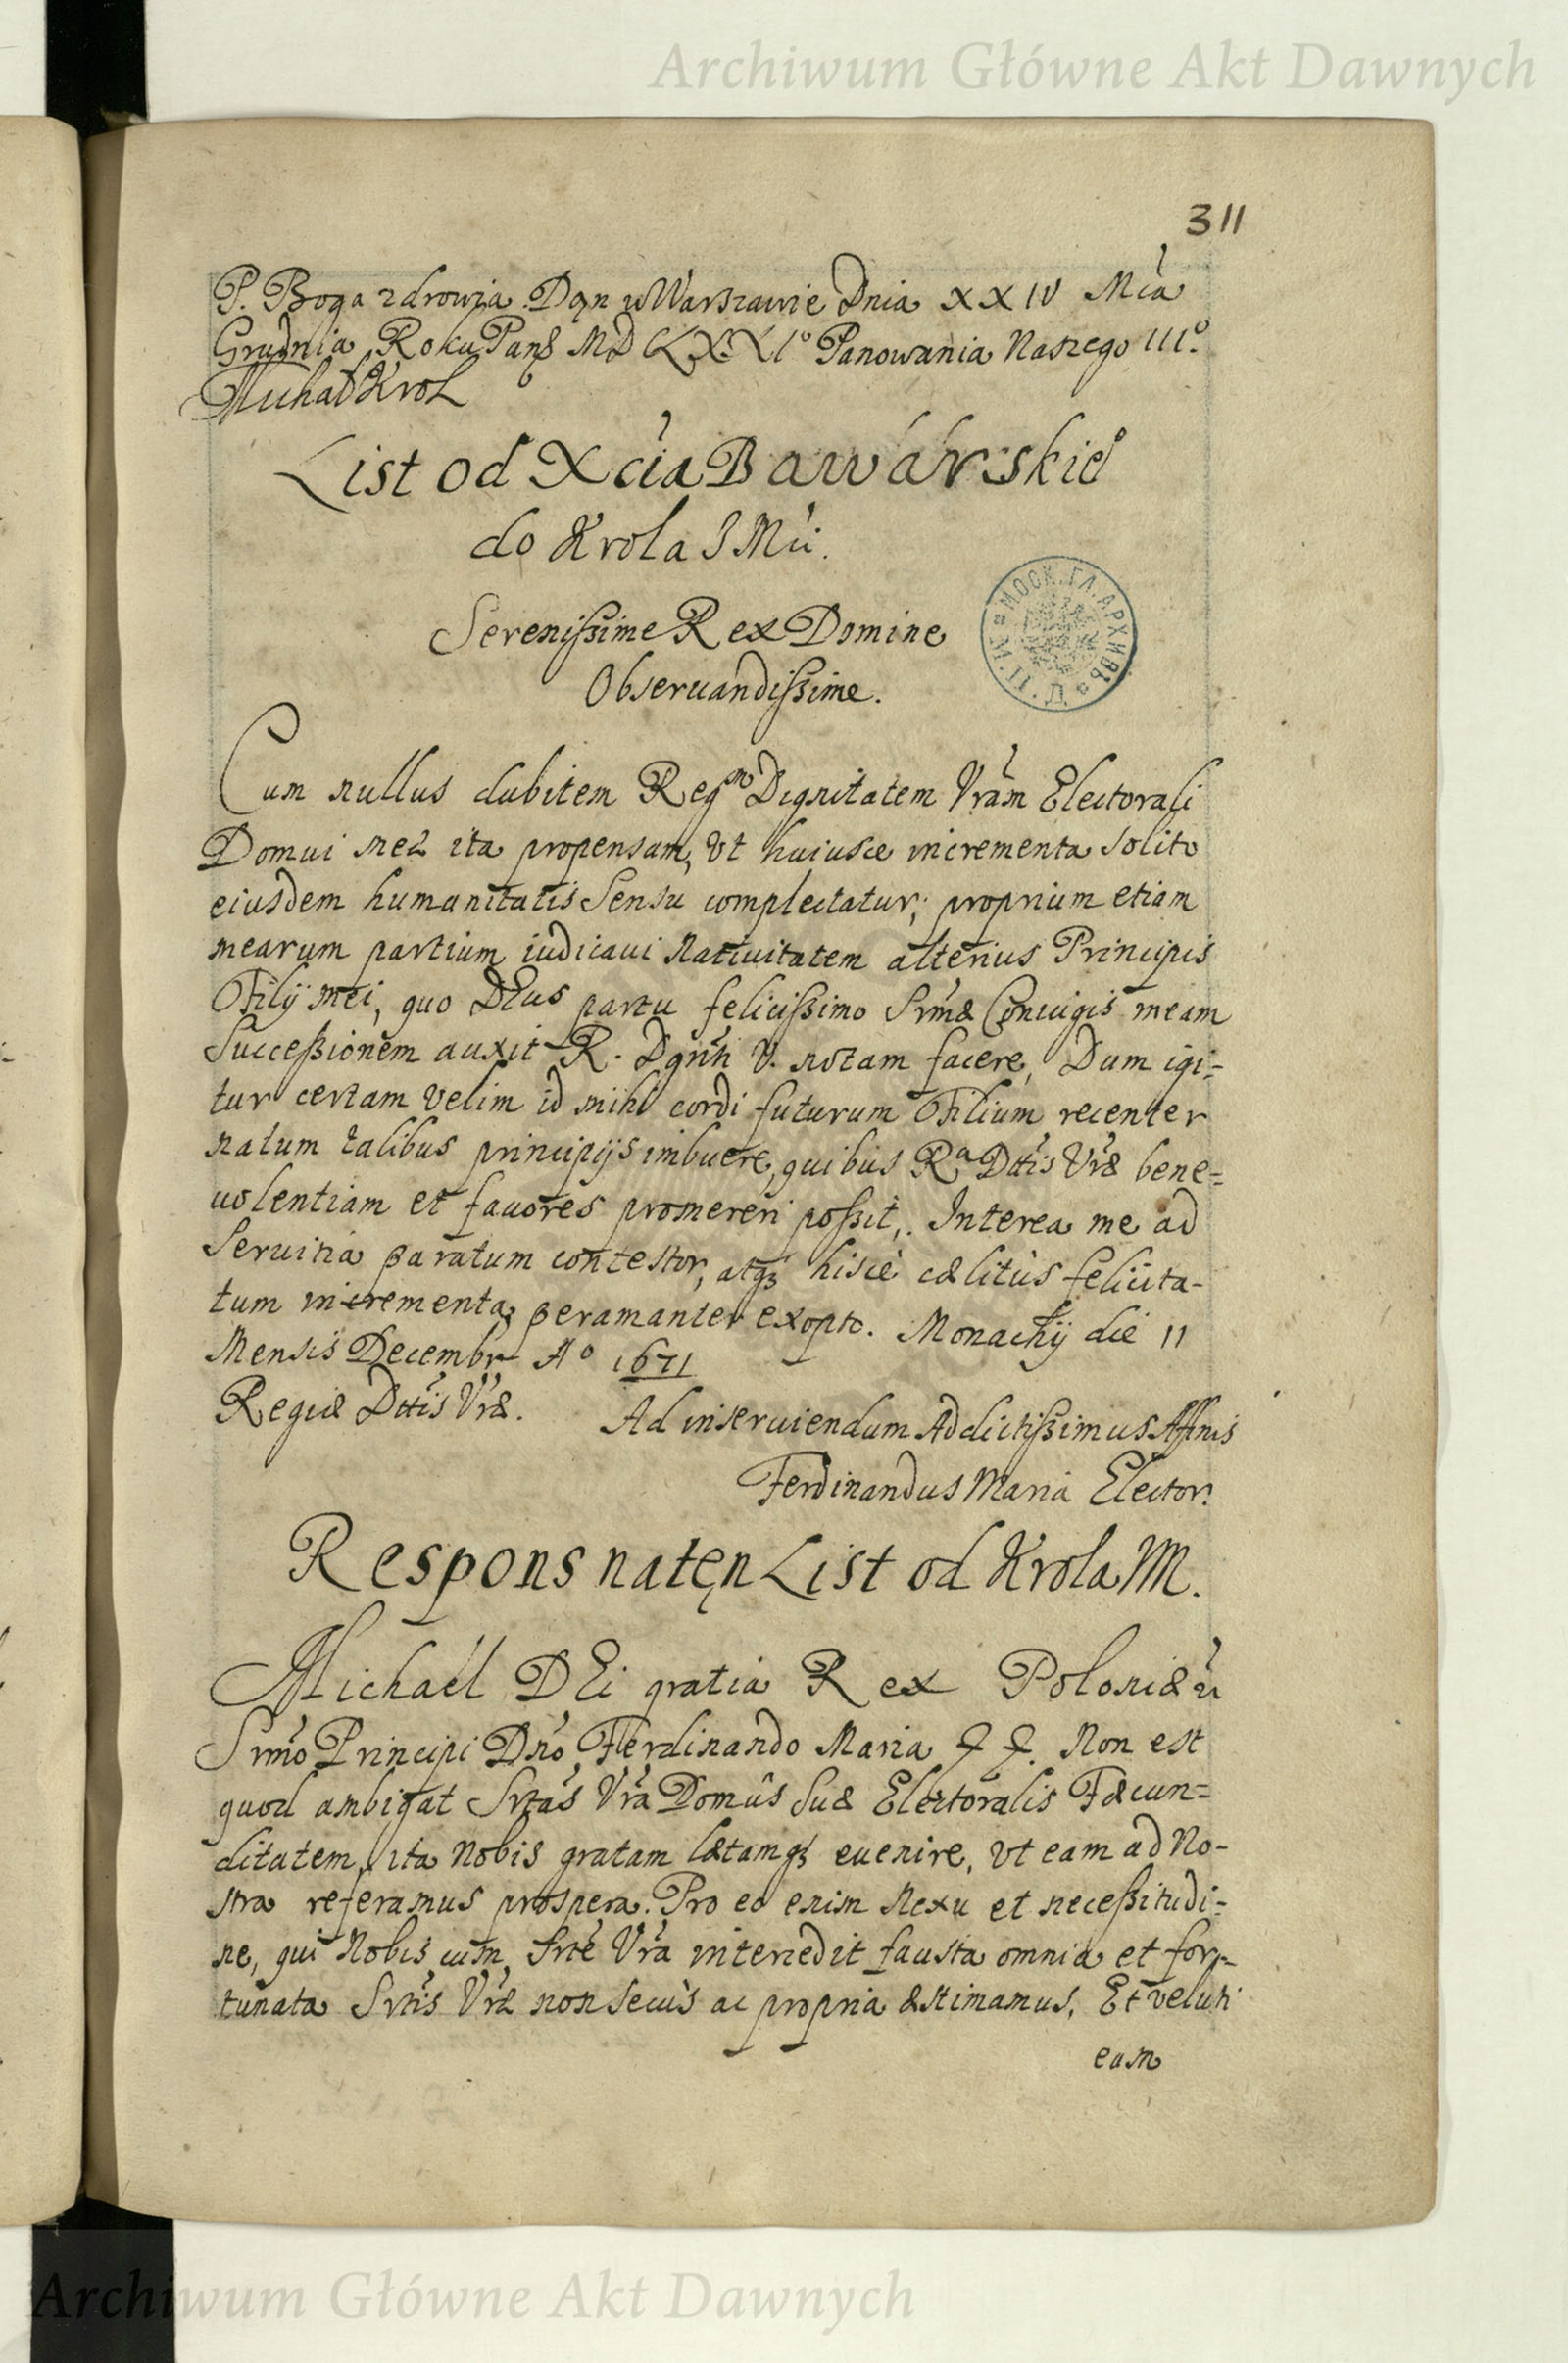 Archiwum Główne Akt Dawnych
311
P. Boga zdrowia. Dan w Warszawie Dnia XXIV Mca
Grudnia Roku Pans MDCLXXIº Panowania Naszego IIIº.
Michał Krol
List od Xcia Bawárskieº
do Krola JMci.
Serenissime Rex Domine
Obseruandissime.
Cum nullus dubitem Regm Dignitatem Vram Electorali
Domui meæ ita propensam, Vt huiusce incrementa solito
eiusdem humanitatis Sensu complectatur; proprium etiam
mearum partium iudicaui Natiuitatem alterius Principis
Filij mei, quo DEus partu felicissimo Srmæ Coniugis meam
Successionem auxit R. Dgnti V. notam facere, Dum igi=
tur certam velim id mihi cordi futurum Filium recenter
natum talibus principijs imbuere, quibus Ra Dttis Vræ bene=
uolentiam et fauores promereri possit,. Interea me ad
Seruitia paratum contestor, atq3 hisce cælitùs felicita-
tum incrementa peramanter exopto. Monachij die 11
Mensis Decembr Aº 1671
Regiæ Dttis Vræ.
Ad inseruiendum Addictissimus Affinis
Ferdinandus Maria Elector.
Respons naten List od Krola JM.
Michaël DEi gratia Rex Poloniæ
Srmo Principi Dno Ferdinando Maria Non est
quod ambigat Srtas Vra Domûs suæ Electoralis Fæcun=
ditatem, ita Nobis gratam lætamq3 euenire, vt eam ad No-
stra referamus prospera. Pro eo enim Nexu et necessitudi=
ne, qui Nobis cum Srte Vra intercedit fausta omnia et for-
tunata Srtis Vræ non secùs ac propria æstimamus. Et veluti
eam
МОСК. ГЛ. АРХИВЪ
Archiwum Główne Akt Dawnych